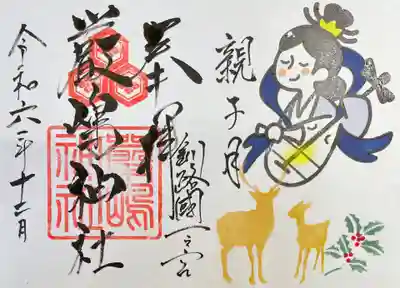 親子月
奉拝
釧路國一之宮
嚴島神社
嚴嶋
神社
令和六年十二月